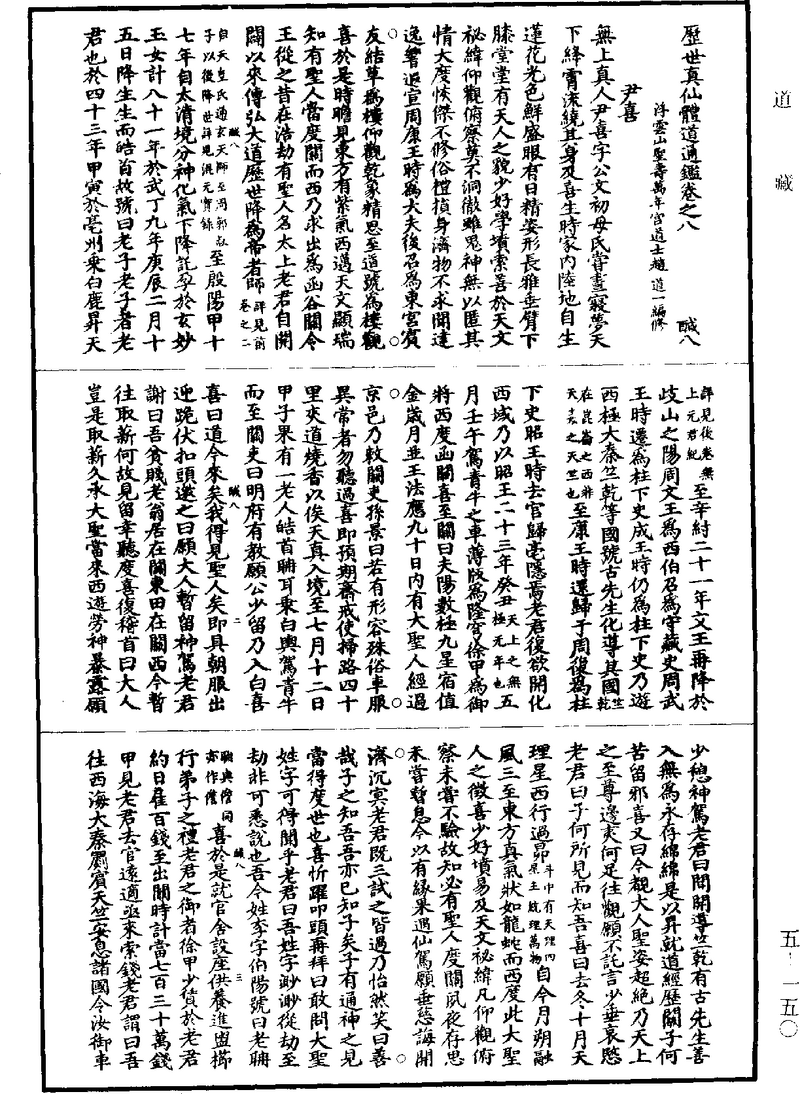 道藏
歷世真仙體道通鑑卷之八 鹹八
浮雲山聖壽萬年宮道士趙道一編修
尹喜
無上真人尹喜字公文初母氏嘗晝寢夢天
下絳霄流繞其身及喜生時家內陸地自生
蓮花光色鮮盛眼有日精姿形長雅垂臂下
膝堂堂有天人之貌少好學墳索善於天文
祕緯仰觀俯察莫不洞徹雖鬼神無以匿其
情大度恢傑不修俗禮損身濟物不求聞達
逸響遐宣周康王時為大夫後召為東宮賓
友結草為樓仰觀乾象精思至道號為樓觀
喜於是時瞻見東方有紫氣西邁天文顯瑞
知有聖人當度關而西乃求出為函谷關令
王從之昔在浩劫有聖人名太上老君自開
闢以來傳弘大道歷世降為帝者師詳見前卷之二
鹹八
自天皇氏通玄天師至周郭叔子以後降世詳見混元實錄至殷陽甲十
七年自太清境分神化氣下降託孕於玄妙
玉女計八十一年於武丁九年庚辰二月十
五日降生生而皓首故號曰老子老子者老
君也於四十三年甲寅於亳州乘白鹿昇天
詳見後卷無上元君紀至辛紂二十一年文王再降於
歧山之陽周文王為西伯召為守藏史周武
王時遷為柱下史成王時仍為柱下史乃遊
西極大秦竺乾等國號古先生化導其國竺乾
在崑崙之西非天之天竺也至康王時還歸于周復為柱
下史昭王時去官歸亳隱焉老君復欲開化
西域乃以昭王二十三年癸丑天上之無極元年也五
月壬午駕青牛之車薄版為隆穹徐甲為御
將西度函關喜至關曰夫陽數極九星宿值
金歲月並王法應九十日內有大聖人經過
京邑乃敕關吏孫景曰若有形容殊俗車服
異常者勿聽過喜即預期齋戒使掃路四十
里夾道燒香以俟天真入境至七月十二日
甲子果有一老人皓首聃耳乘白輿駕青牛
而至關吏曰明府有教願公少留乃入白喜
鹹八 二
喜曰道今來矣我得見聖人矣即具朝服出
迎跪伏扣頭邀之曰願大人暫留神駕老君
謝曰吾貧賤老翁居在關東田在關西今暫
往取薪何故見留幸聽度喜復稽首曰大人
豈是取薪久承大聖當來西遊勞神暴露願
少憩神駕老君曰聞開導竺乾有古先生善
入無為永存綿綿是以昇就道經歷關子何
苦留邪喜又曰今觀大人聖姿超絕乃天上
之至尊邊夷何足往觀願不託言少垂哀愍
老君曰子何所見而知吾喜曰去冬十月天
理星西行過昴斗中有天理四星主統理萬物自今月朔融
風三至東方真氣狀如龍蛇而西度此大聖
人之徵喜少好墳易及天文祕緯凡仰觀俯
察未嘗不驗故知必有聖人度關夙夜存思
未嘗暫息今以有緣果遇仙駕願垂慈誨開
濟沉冥老君既三試之皆過乃怡然笑曰善
哉子之知吾吾亦已知子矣子有通神之見
當得度世也喜忻躍叩頭再拜曰敢問大聖
姓字可得聞乎老君曰吾姓字渺渺從劫至
劫非可悉說也吾今姓李字伯陽號曰老聃
鹹八 三
聃與儋同亦作儋喜於是就官舍設座供養進盥櫛
行弟子之禮老君之御者徐甲少賃於老君
約日雇百錢至出關時計當七百三十萬錢
甲見老君去官遠適亟來索錢老君謂曰吾
往西海大秦罽賓天竺安息諸國令汝御車
五－一五〇